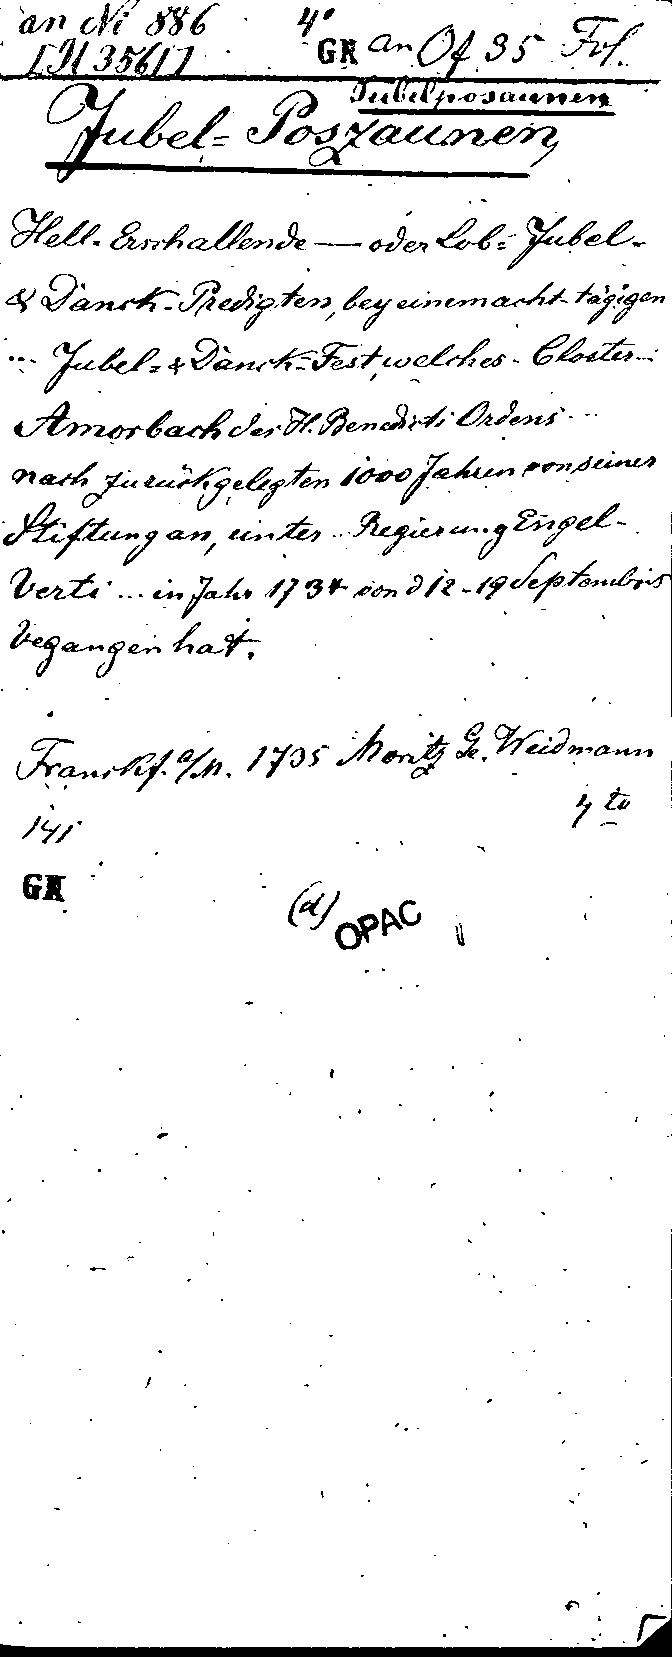 an Ni 886 4°
LH 35617 GR an Of 35 Fol.
Jubelposaunen
Jubel= Poszaunen,
Hell-Erschallende — oder Lob= Jubel-
& Danck-Predigten, bey einem acht-tägigen
... Jubel= & Danck=Fest, welches - Closter ...
Amorbach des H. Benedicti Ordens ...
nach zurückgelegten 1000 Jahren von seiner
Stiftung an, unter .. Regierung Engel-
berti ... in Jahr 1734 von d 12-19 Septembris
begangen hat.
Franckf. a/M. 1735 Moritz G. Weidmann
4 to
141
GR
(d) OPAC